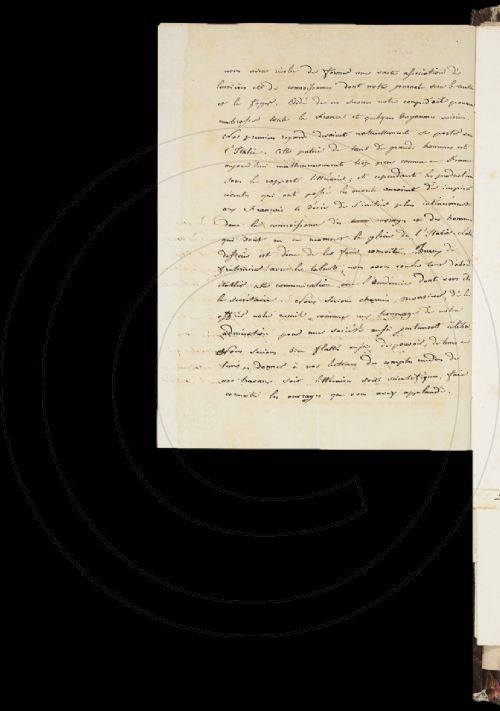 nous avons résolu de former une vaste association de
lumières et de connoissances dont notre journal sera le centre
et le foyer. Aidé de ce secours notre corps doit pouvoir
embrasser toute la france et quelques royaumes voisins.
Nos premiers regards devaient naturellement se porter sur
l'Italie. Cette patrie de tant de grands hommes est
aujourd'hui malheureusement trop peu connue en France
sous le rapport littéraire, et cependant les productions
récentes qui ont passé les monts auraient dû inspirer
aux français le désir de s'initier plus intimement
dans la connoissance des ouvrages et des hommes
qui font en ce moment la gloire de l'Italie. Notre
dessein est donc de les faire connoitre.
avec les talents, nous avons voulu tout d'abord
établir cette communication avec l'académie dont vous êtes
le secrétaire. Nous serions charmés, monsieur, de le
notre comme un hommage de notre
admiration pour une société aussi justement célèbre
Nous serions bien flattés aussi de pouvoir, de tems en
tems, donner à nos lecteurs des comptes rendus de
vos travaux soit littéraires soit scientifiques, faire
connoitre les ouvrages que vous avez applaudi.